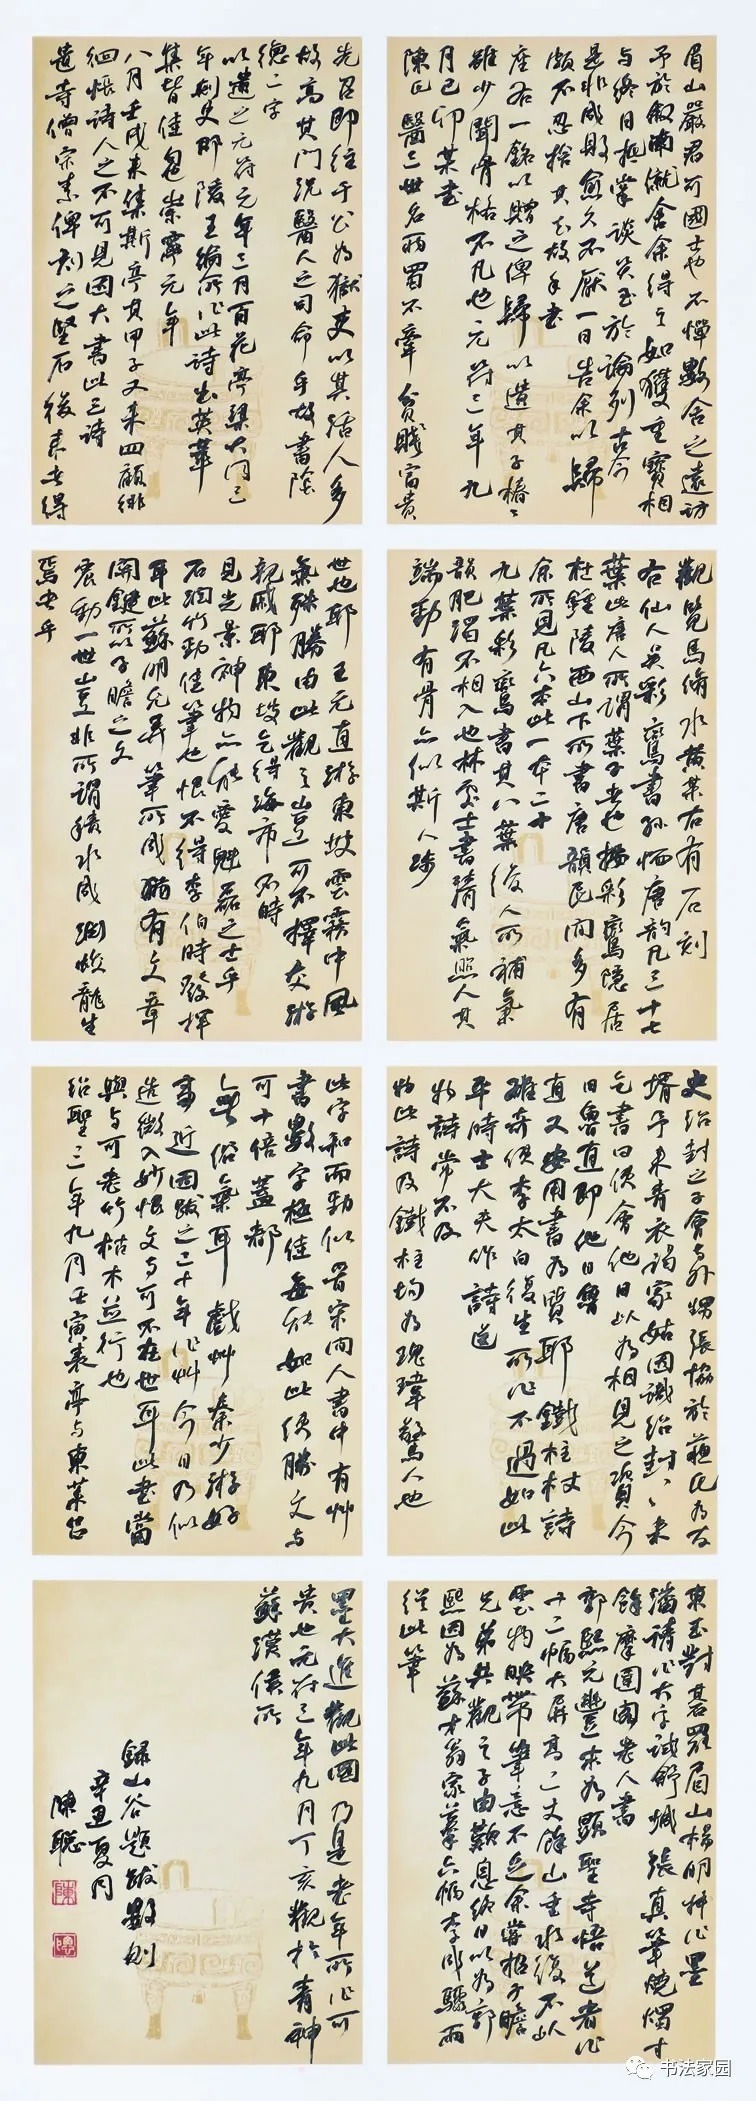 眉山嚴君可國士也不憚數舍之遠訪
予於敘南僦舍余得之如獲重寶相
与終日抵掌談笑至於論列古今
是非成敗愈久不厭一日告余以歸
頗不忍捨其去故手書
座右一銘以贈之俾歸以遺其子椿椿
雖少聞骨格不凡也元符三年九
月己卯某書
陳氏醫三世名兩蜀不牽貧賤富貴
先君即往于公為獄吏以其活人多
故高其門況醫人之司命乎故書陰
德二字
以遺之元符元年三月百花亭梁大同三
年刺史邵陵王綸所作此詩出英華
集皆佳句崇寧元年
八月壬戌來集斯亭其甲子又來四顧徘
徊恨詩人之不可見因大書此三詩
遺寺僧宗素俾刻之堅石後來者得
觀覽焉脩水黃某右有石刻
右仙人吳彩鸞書孫愐唐韵凡三十七
葉此唐人所謂葉子者也按彩鸞隱居
在鍾陵西山下所書唐韻民間多有
余所見凡六本此一本二十
九葉彩鸞書其八葉後人所補氣
韻肥濁不相入也林處士書清氣照人其
端勁有骨亦似斯人涉
世也耶王元直游東坡雲霧中風
氣殊勝由此觀之豈可不擇交游
親戚耶東坡乞得海市不時
見光景神物亦能愛魁磊之士乎
石潤竹勁佳筆也恨不得李伯時發揮
耳此蘇明允弄筆所成猶有文章
關鍵所以子瞻之文
震動一世豈非所謂積水成淵蛟龍生
焉者乎
史紹封之子會與外甥張協於蘇氏為友
壻予來青衣謁家姑因識紹封紹封來
乞書曰使會他日以為相見之資今
日魯直即他日魯
直又安用書為質耶鐵柱杖詩
雄奇使李太白復生所作不過如此
平時士大夫作詩送
物詩常不及
物此詩及鐵柱均為瑰瑋驚人也
此字和而勁似晉宋間人書中有艸
書數字極佳每能如此便勝文与
可十倍蓋都
無俗氣耳戲艸秦少游好
事近因跋之三十年作艸今日乃似
造微入妙恨文与可不在世耳此書當
與与可老竹枯木並行也
紹聖三年九月壬寅表亭与東萊呂
東玉對棊罷眉山楊明叔作墨
瀋請作大字試舒城張真筆燒燭寸
餘摩圍閣老人書
郭熙元豐末為顯聖寺悟道者作
十二幅大屏高二丈餘山重水複不以
雲物映帶筆意不乏余嘗招子瞻
兄弟共觀之子由歎息終日以為郭
熙因為蘇才翁家摹六幅李成驟雨
從此筆
墨大進觀此圖乃是老年所作可
貴也元符三年九月丁亥觀於青神
蘇漢侯所
錄山谷題跋數則
辛丑夏月
陳聰
书法家园